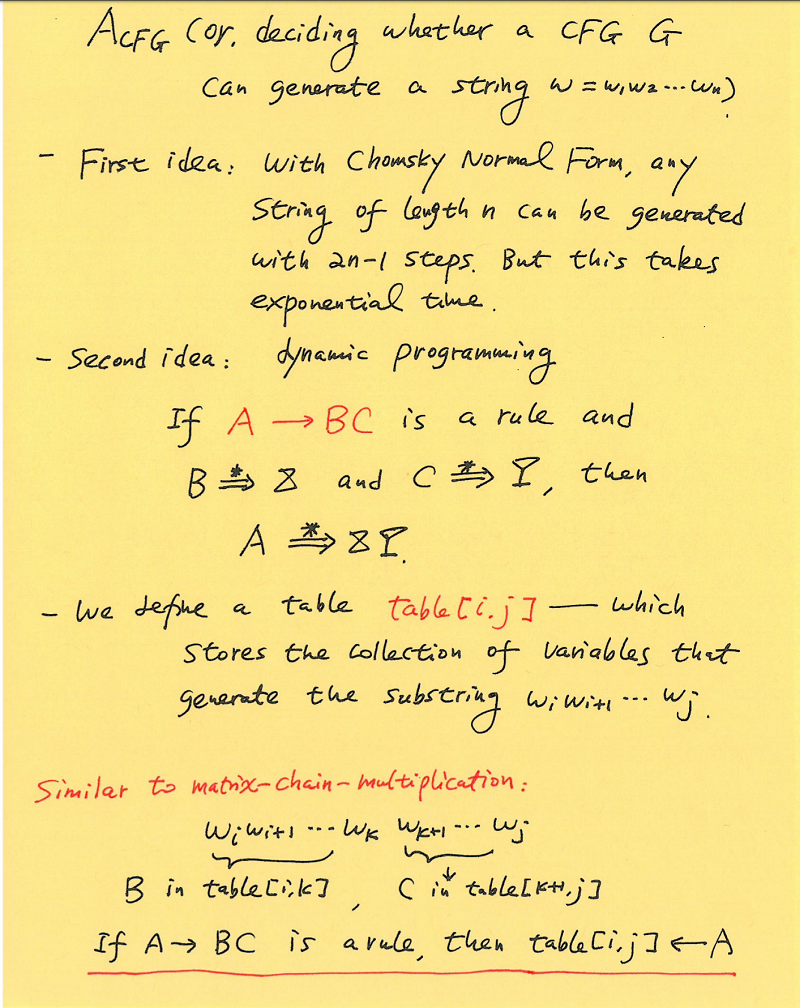 A_CFG (or. deciding whether a CFG G
can generate a string w = w₁w₂...wₙ)
- First idea: With Chomsky Normal Form, any
String of length n can be generated
with 2n-1 steps. But this takes
exponential time.
- Second idea: dynamic programming
If A → BC is a rule and
B *⇒ X and C *⇒ Y, then
A *⇒ XY.
- We define a table table[i,j] — which
Stores the collection of variables that
generate the substring wᵢwᵢ₊₁ ... wⱼ.
Similar to matrix-chain-multiplication:
wᵢwᵢ₊₁ ... wₖ wₖ₊₁ ... wⱼ
B in table[i,k], C in table[k+1,j]
If A → BC is a rule, then table[i,j] ← A